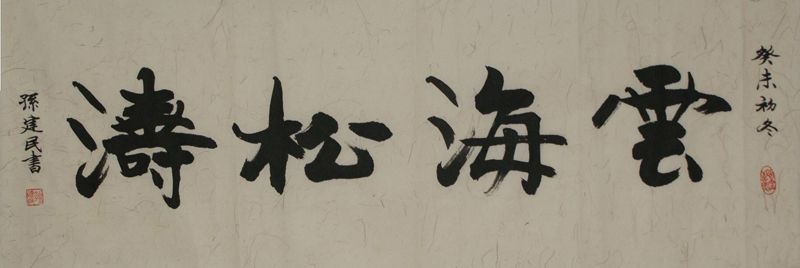 癸未初冬
雲海松濤
孫建民書